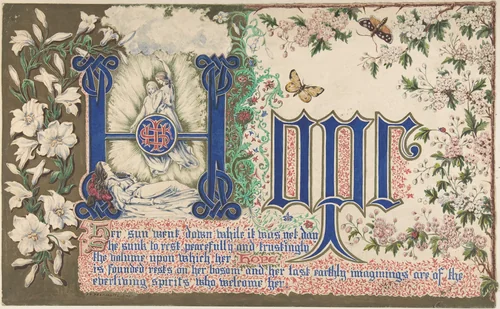 Hope
IHS
Her sun went down while it was yet day
She sunk to rest peacefully and trustingly
the volume upon which her hope
is founded rests on her bosom and her last earthly imaginings are of the
everliving spirits who welcome her